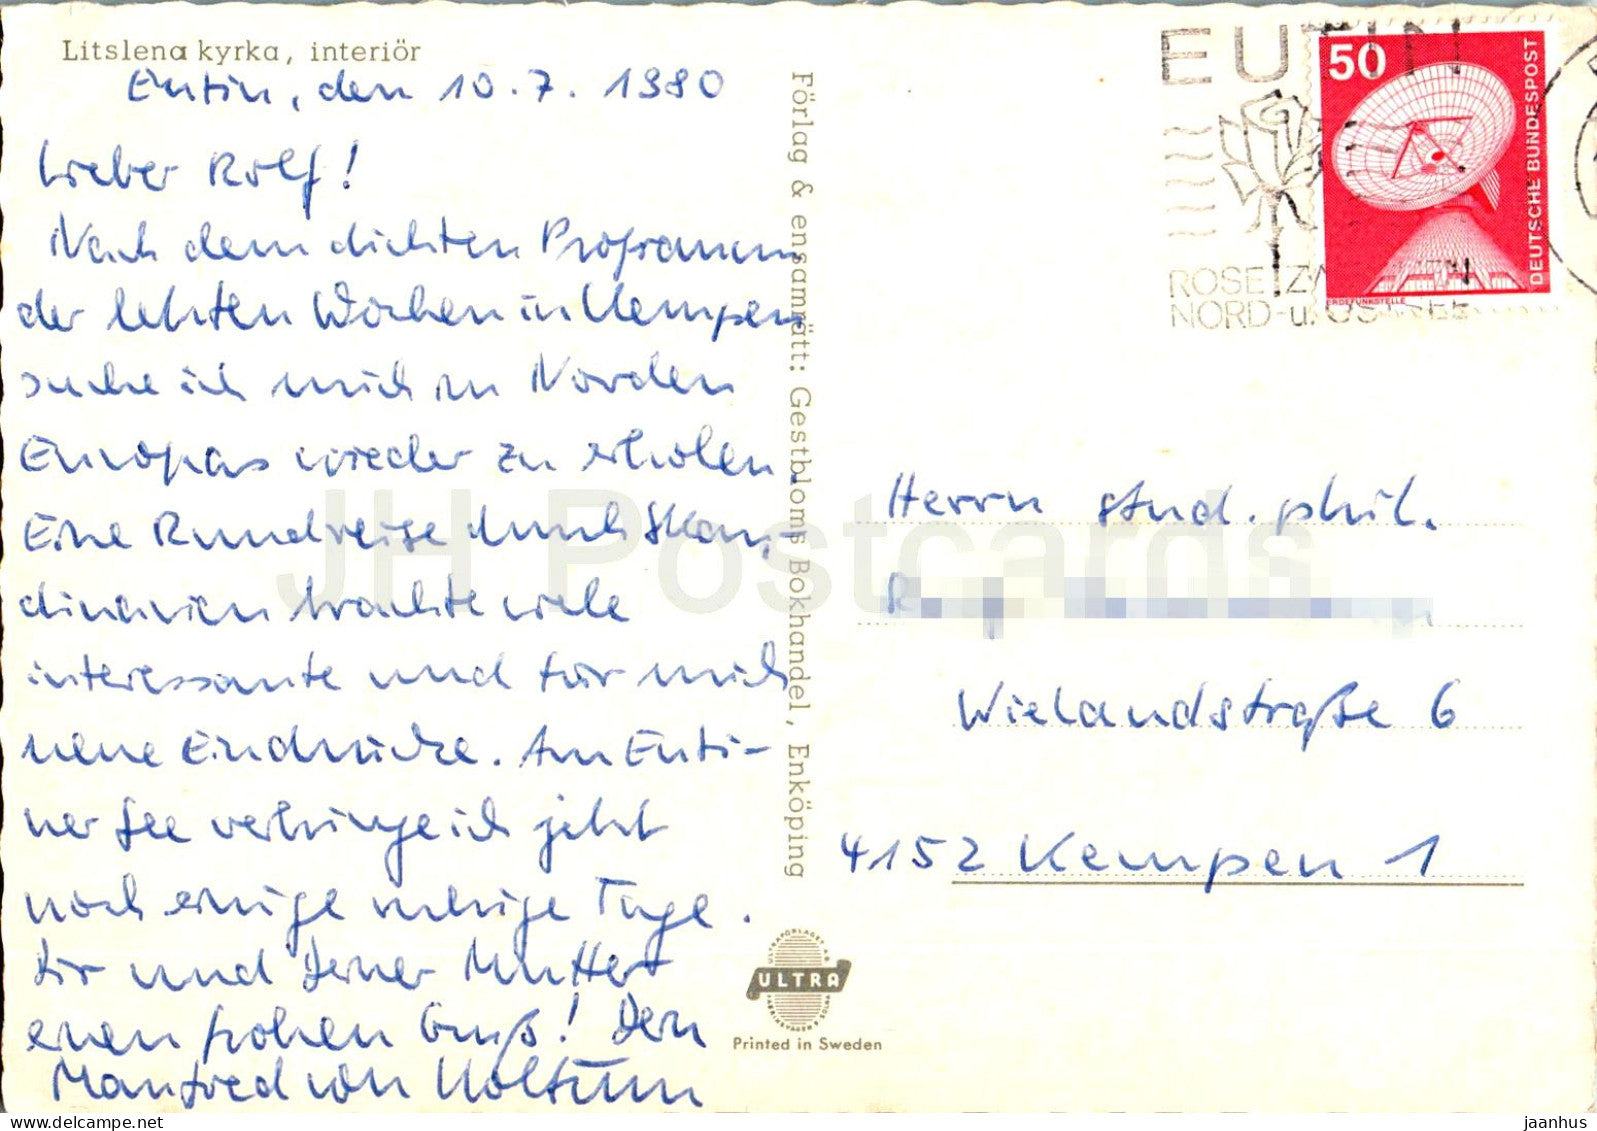 Litslena kyrka, interiör
Eutin, den 10.7.1980
Lieber Rolf!
Nach dem dichten Programm
der letzten Wochen in Kempen
suche ich mich im Norden
Europas wieder zu erholen.
Eine Rundreise durch Skan-
dinavien brachte viele
interessante und für mich
neue Eindrücke. Am Euti-
ner See verbringe ich jetzt
noch einige ruhige Tage.
Dir und Deiner Mutter
einen frohen Gruß! Dein
Manfred von Holtum
Förlag & ensamrätt: Gestbloms Bokhandel, Enköping
ULTRA
Printed in Sweden
EUTIN
ROSE
NORD- u. OSTSEE
50
DEUTSCHE BUNDESPOST
ERDEFUNKSTELLE
Herrn stud. phil.
Wielandstraße 6
4152 Kempen 1
JH Postcards
www.delcampe.net
jaanhus